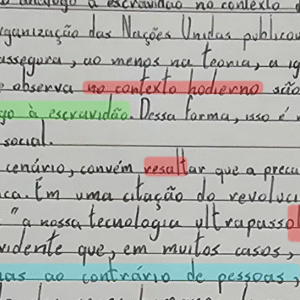 análogo à escravidão no contexto d
rganização das Nações Unidas publicou
assegura, ao menos na teoria, a ig
e observa no contexto hodierno são
go à escravidão. Dessa forma, isso é r
social.
cenário, convém resaltar que a preca
ca. Em uma citação do revoluci
"a nossa tecnologia ultrapasso
vidente que, em muitos casos,
as ao contrário de pessoas,